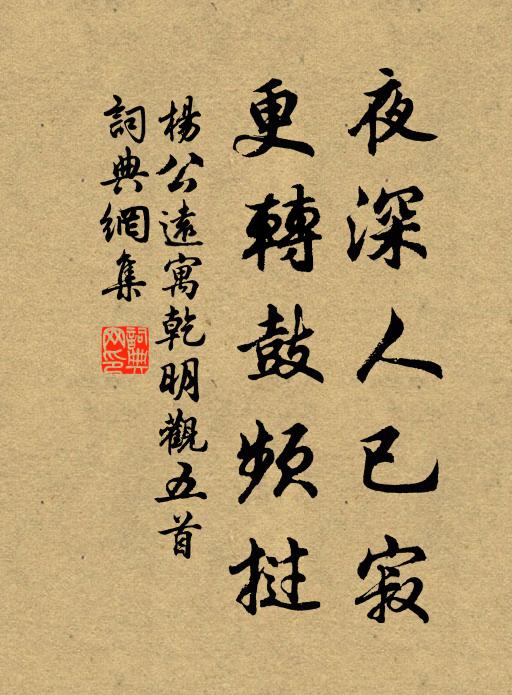 夜深人已寂
更轉鼓頻撾
楊公遠寓乾明觀五首
詞典網集
詞典網印